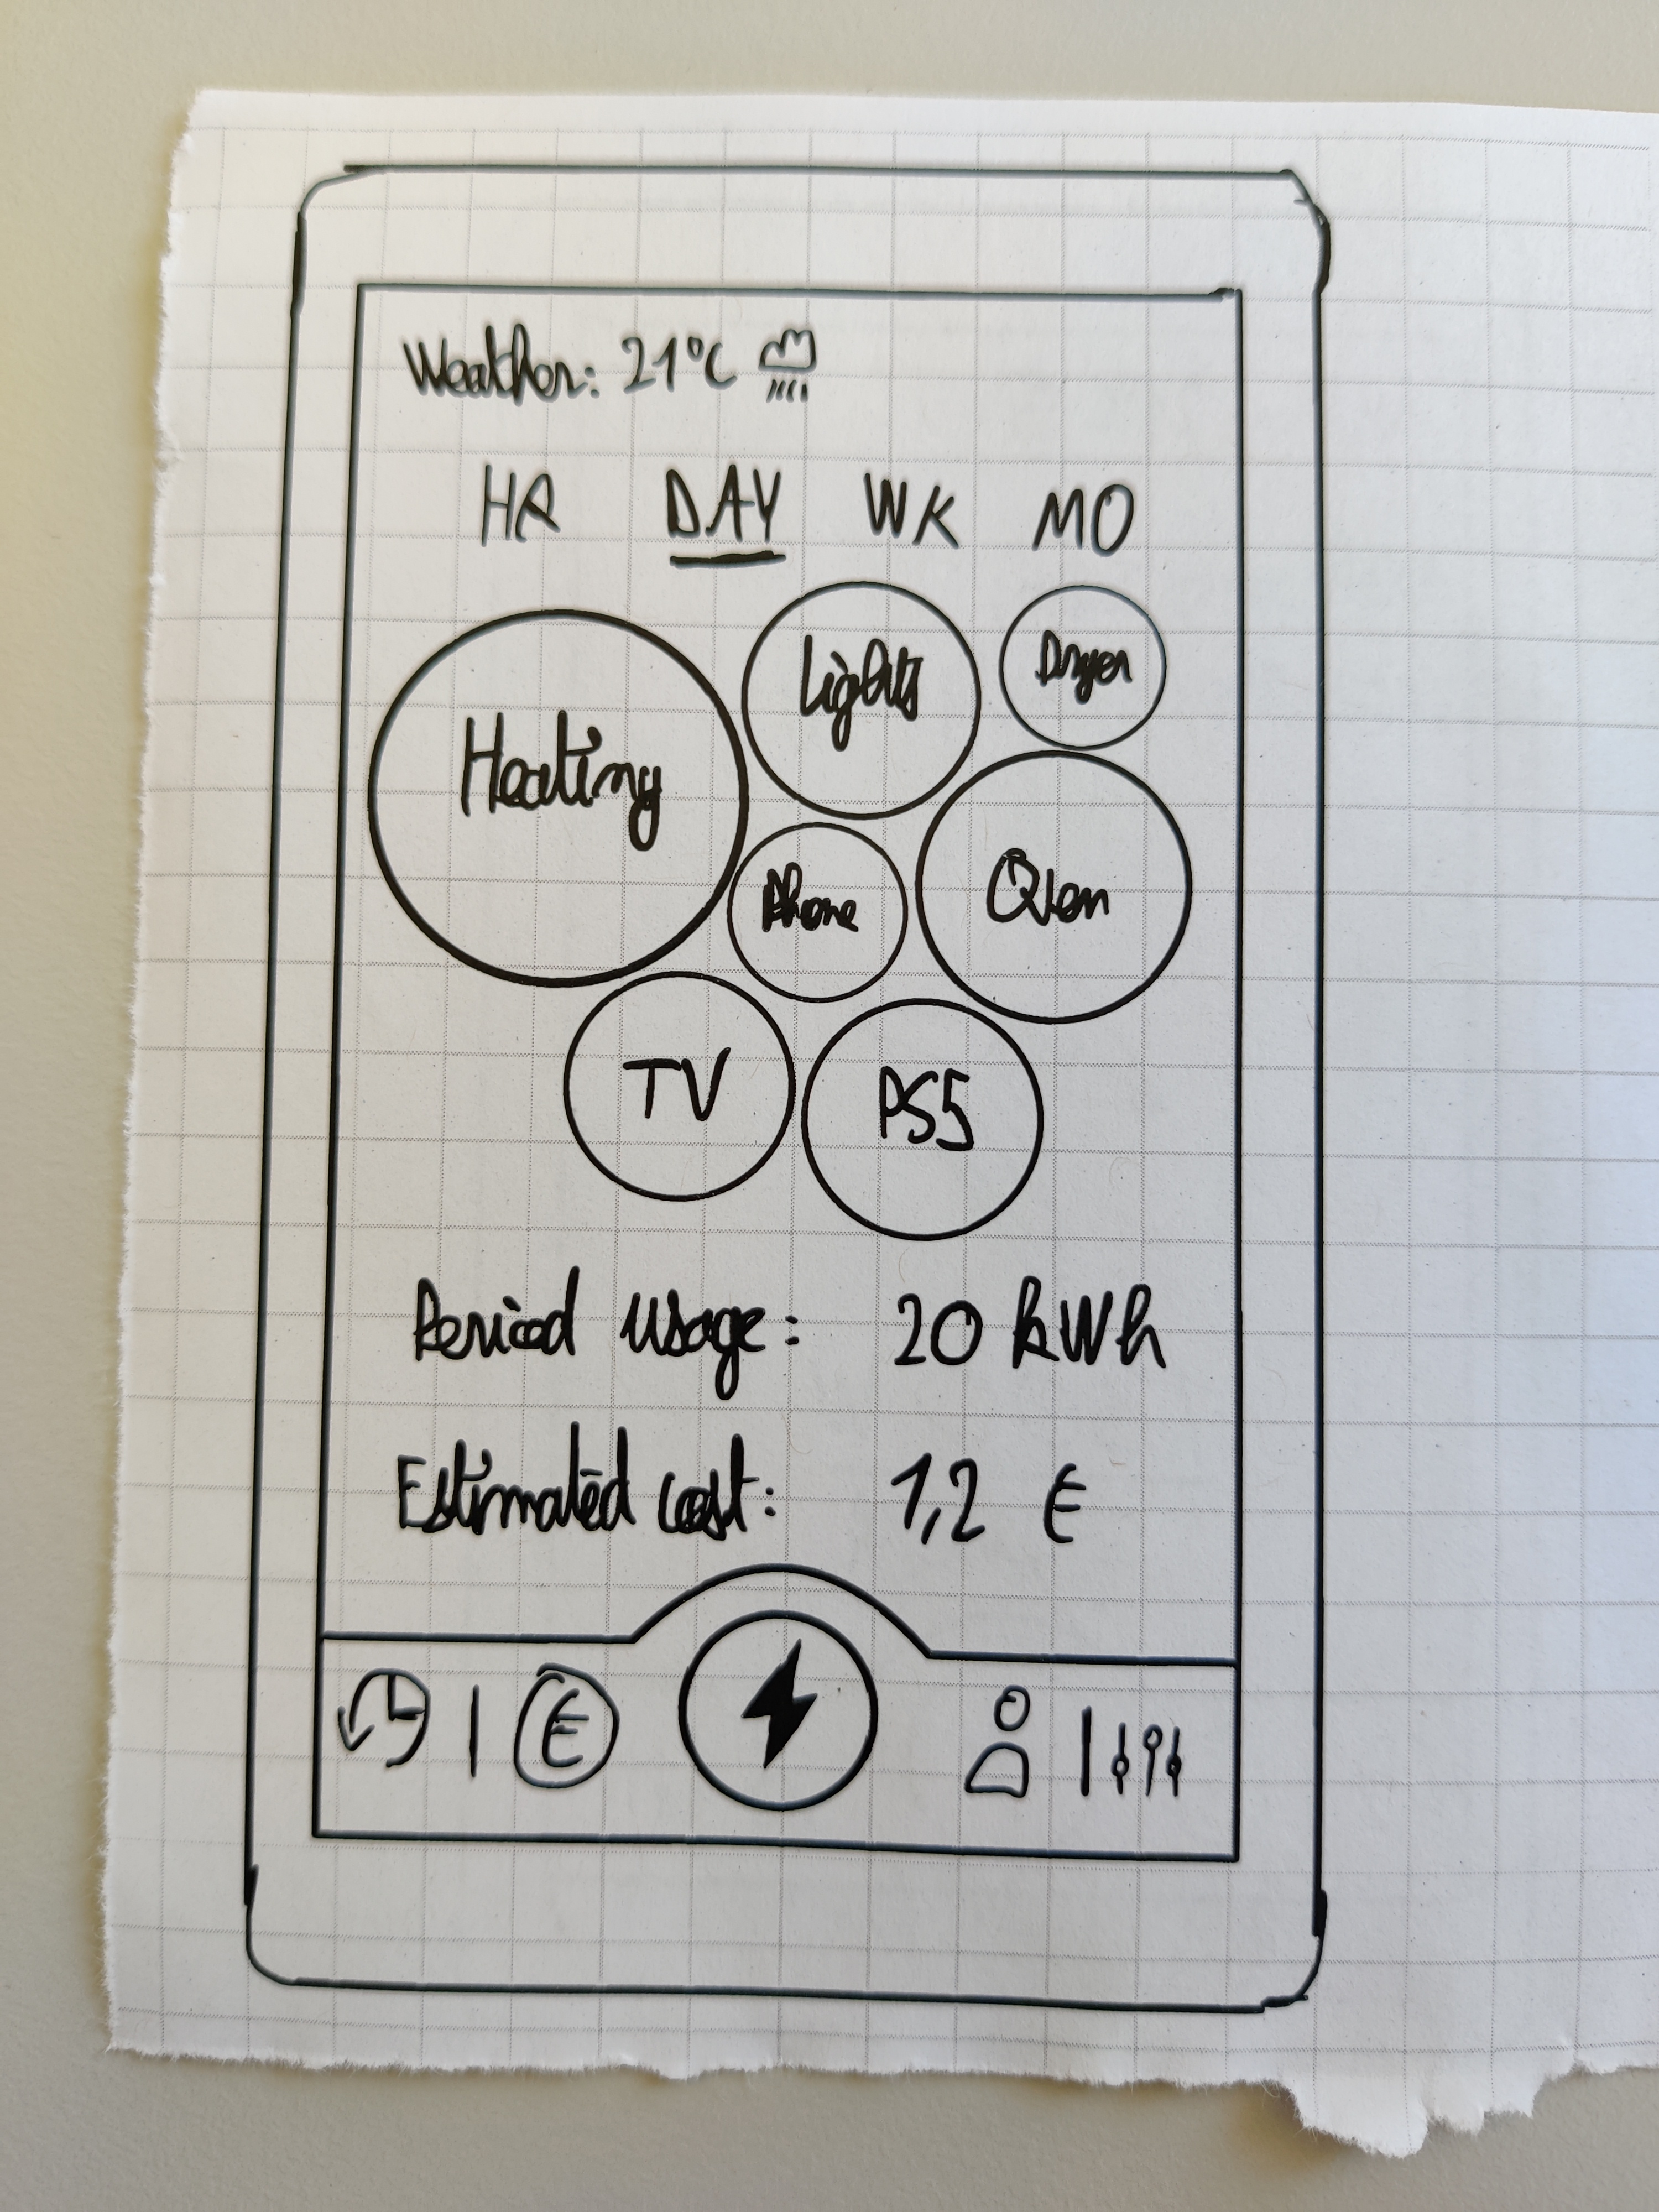 Weather: 21°C
HR DAY WK MO
Heating
Lights
Dryer
Phone
Oven
TV
PS5
Period usage: 20 kWh
Estimated cost: 1,2 €
€